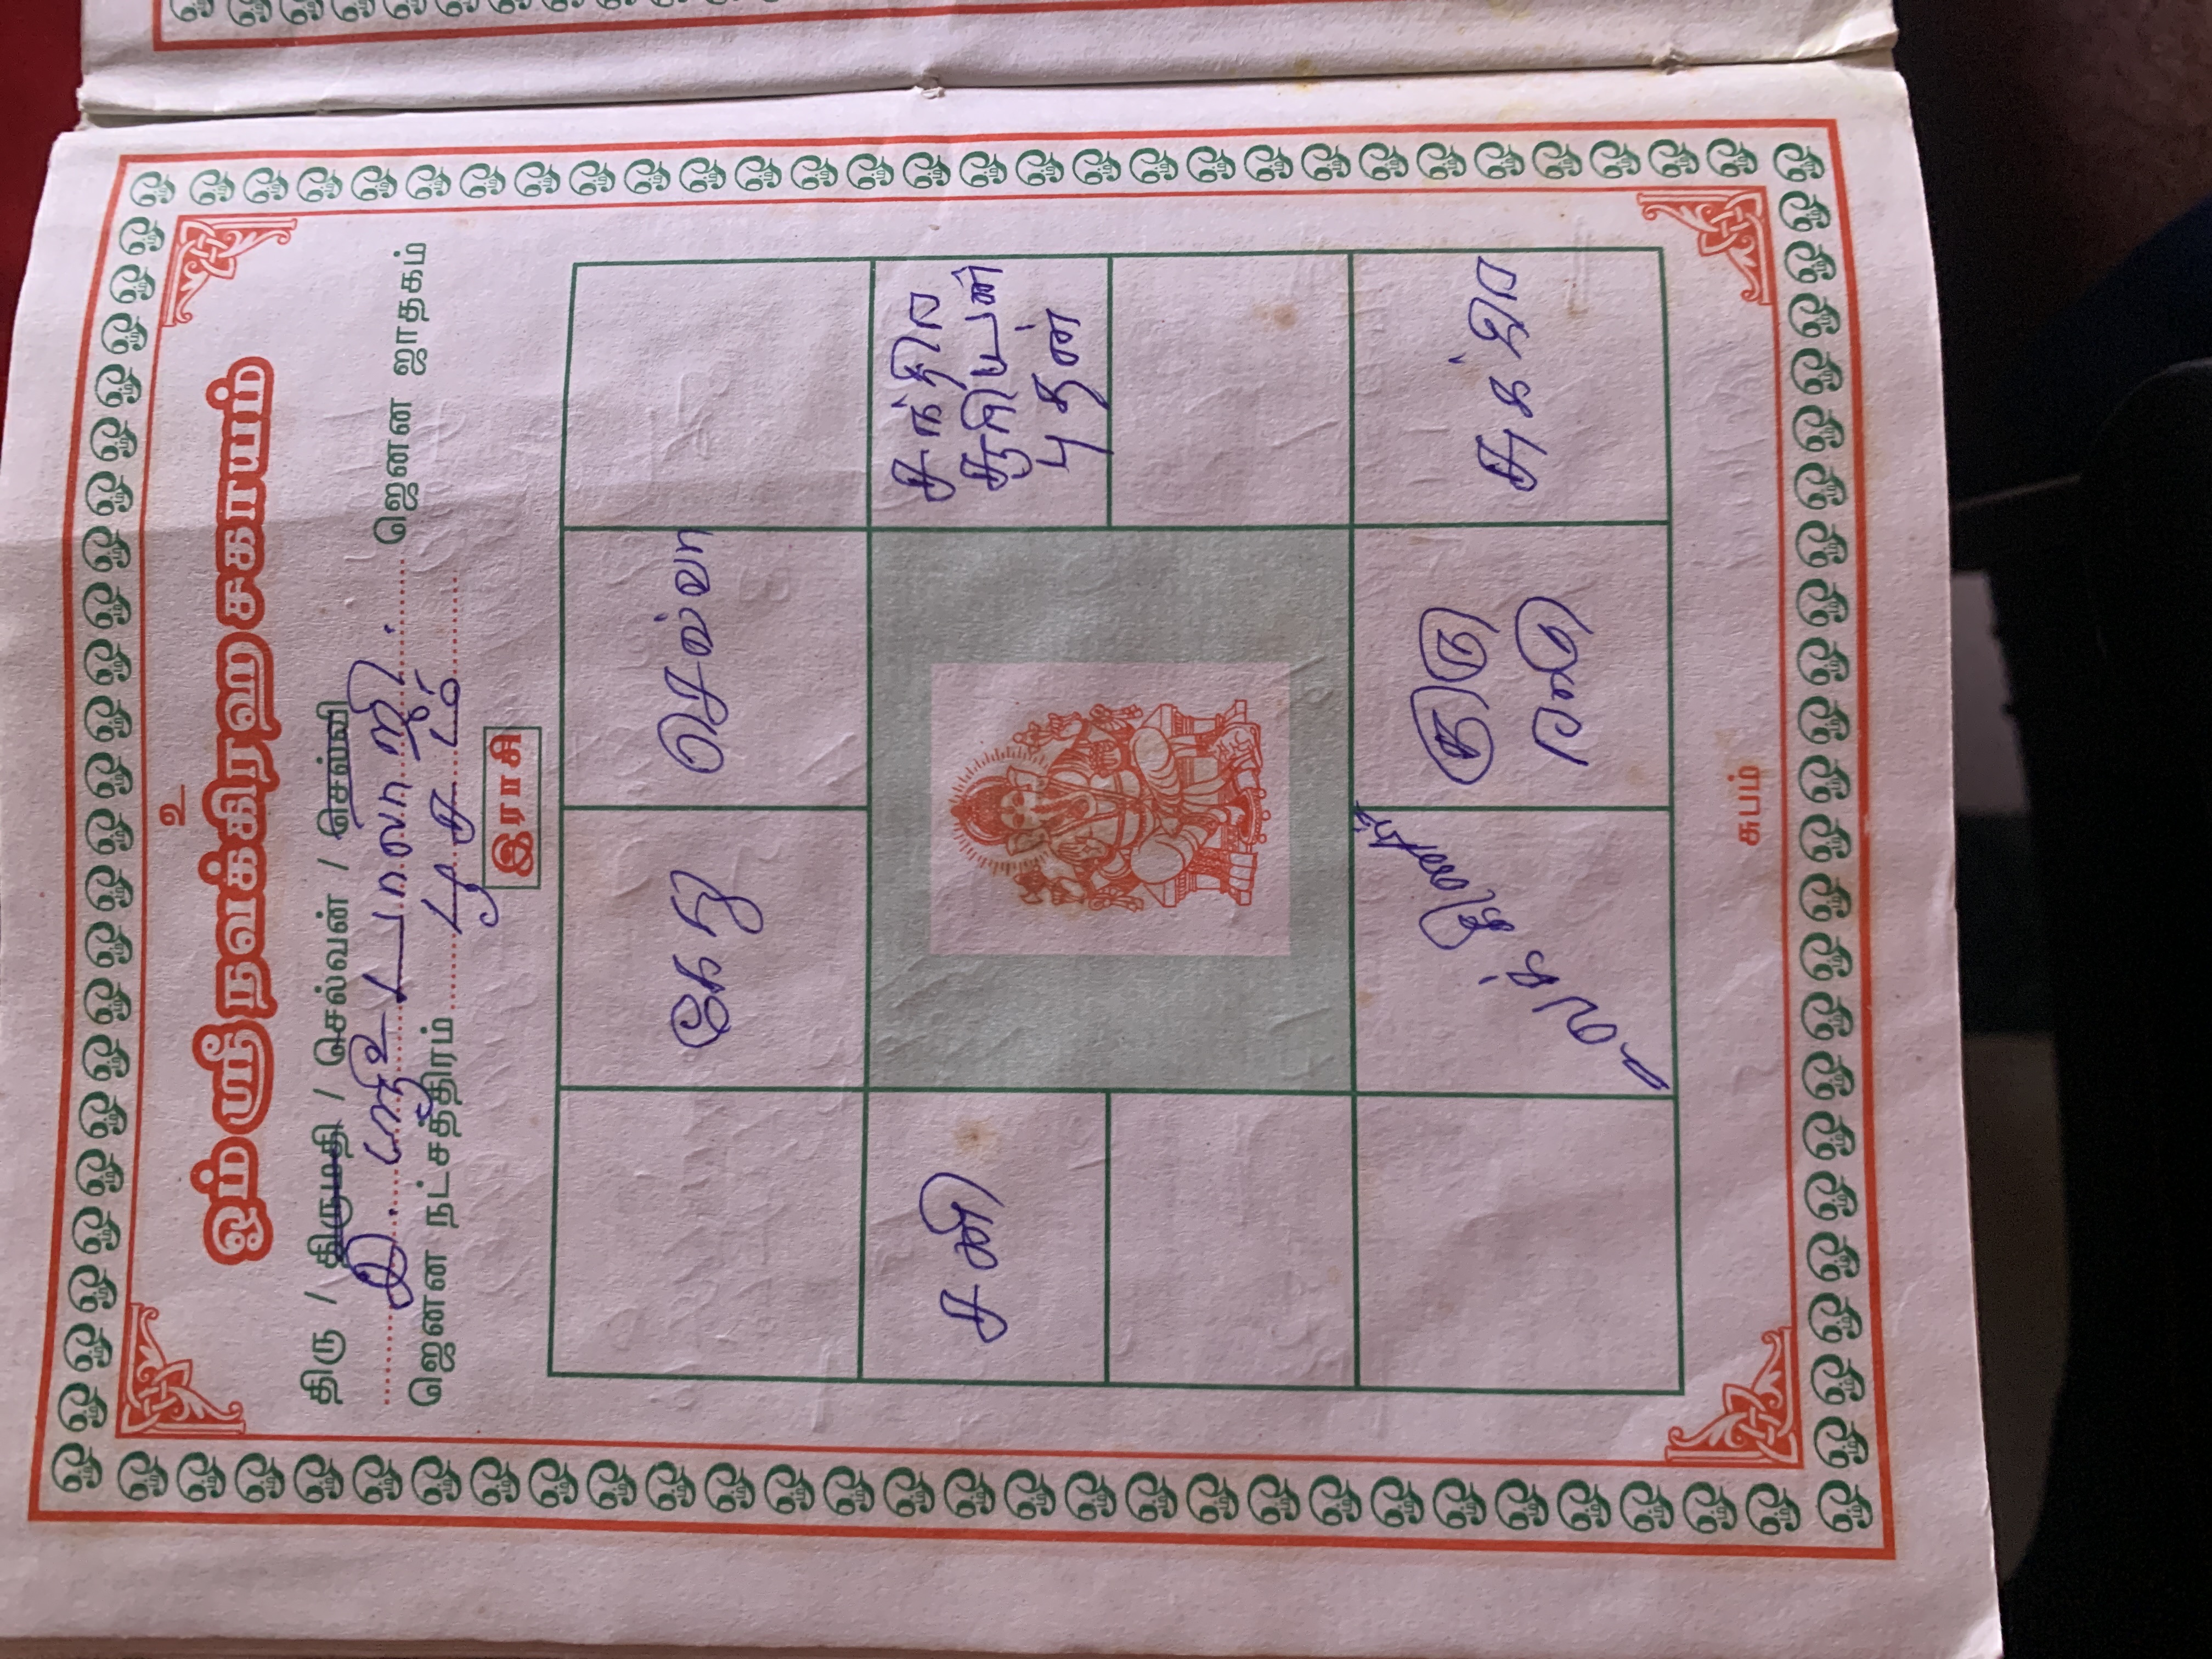 உ
ஓம் ஸ்ரீ நவக்கிரஹ சகாயம்
திரு / திருமதி / செல்வன் / செல்வி
இ. யாதவ பாலாஜி. ஜெனன ஜாதகம்
ஜெனன நட்சத்திரம் பூசம்
இராசி
கேது
செல்வா
சனி
சந்திர
சூரியன்
புதன்
லக்
குரு
ராகு
சுக்ர
சுபம்